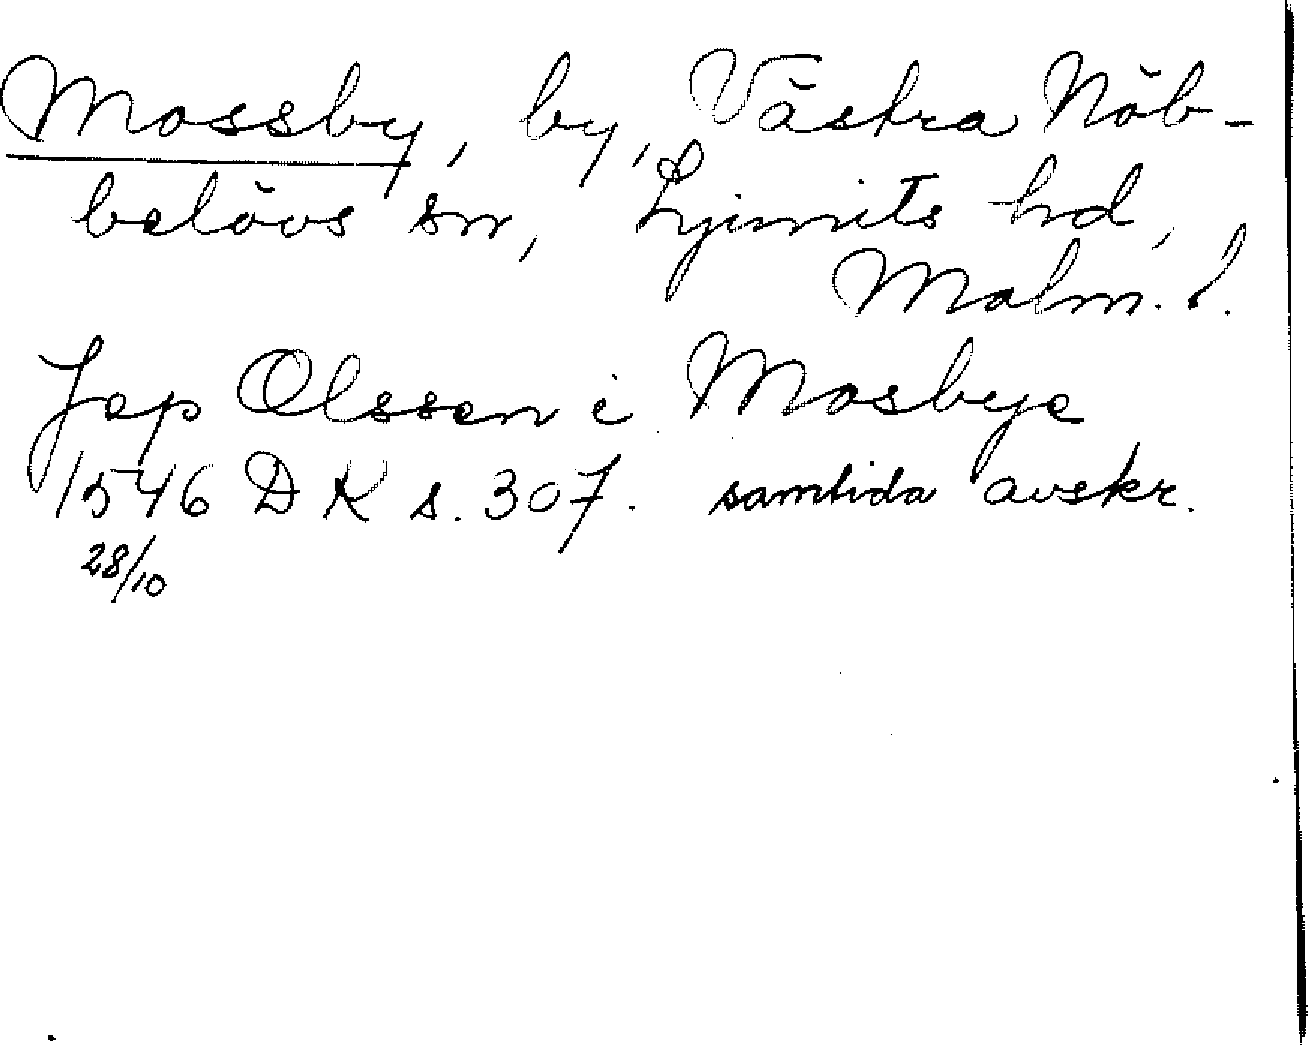 Mossby, by, Västra Nöb-
belövs sn, Ljunits hd,
Malm. l.
Jep Olssen i Mosbye
1546 DK s. 307. samtida avskr.
28/10